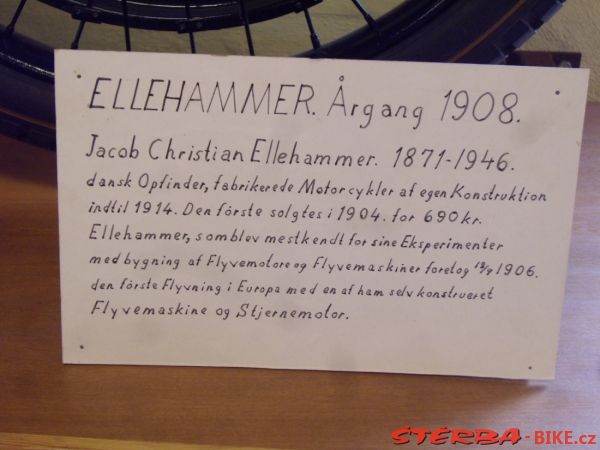 ELLEHAMMER. Årgang 1908.
Jacob Christian Ellehammer. 1871-1946.
dansk Opfinder, fabrikerede Motorcykler af egen Konstruktion
indtil 1914. Den förste solgtes i 1904. for 690 kr.
Ellehammer, somblev mestkendt for sine Eksperimenter
med bygning af Flyvemotore og Flyvemaskiner foretog 12/9 1906.
den förste Flyvning i Europa med en af ham selv konstrueret
Flyvemaskine og Stjernemotor.
ŠTĚRBA-BIKE.cz